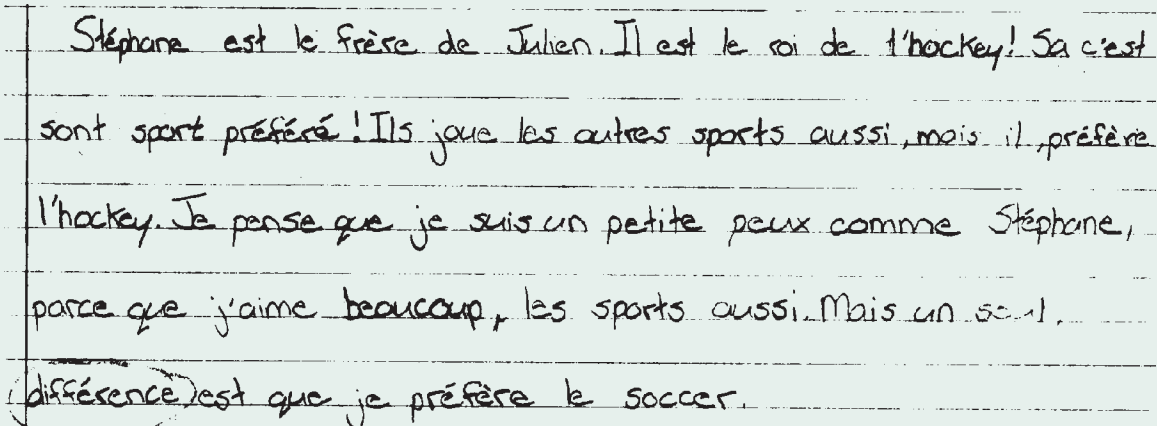 Stéphane est le frère de Julien. Il est le roi de l'hockey! Sa c'est
sont sport préféré! Ils joue les autres sports aussi, mais il, préfère
l'hockey. Je pense que je suis un petite peux comme Stéphane,
parce que j'aime beaucoup, les sports aussi. Mais un
différence est que je préfère le soccer.